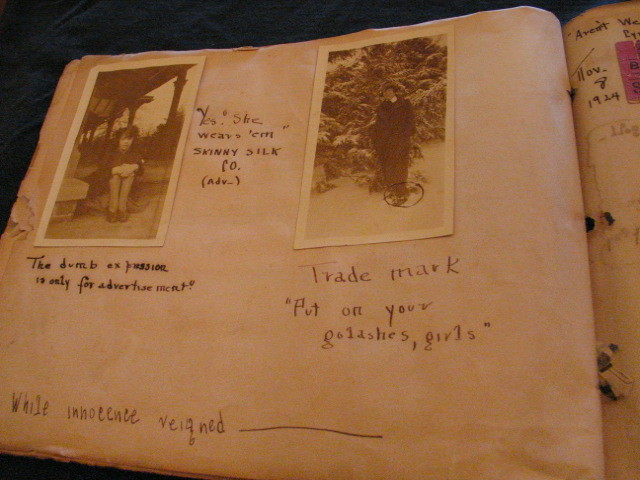 Yes. "She
wears 'em"
SKINNY SILK
CO.
(adv.)
The dumb expression
is only for advertisement."
Trade mark
"Put on your
golashes, girls"
While innocence reigned
"Aren't We
Nov.
8
1924